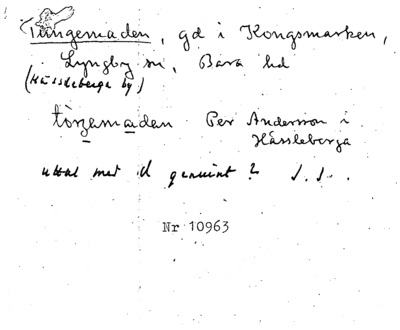 Tungemaden, gd i Kongsmarken,
Lyngby sn, Bara hd
(Hässleberga by)
tòŋamadan Per Andersson i
Hässleberga
uttal med d genuint? J.S.
Nr 10963